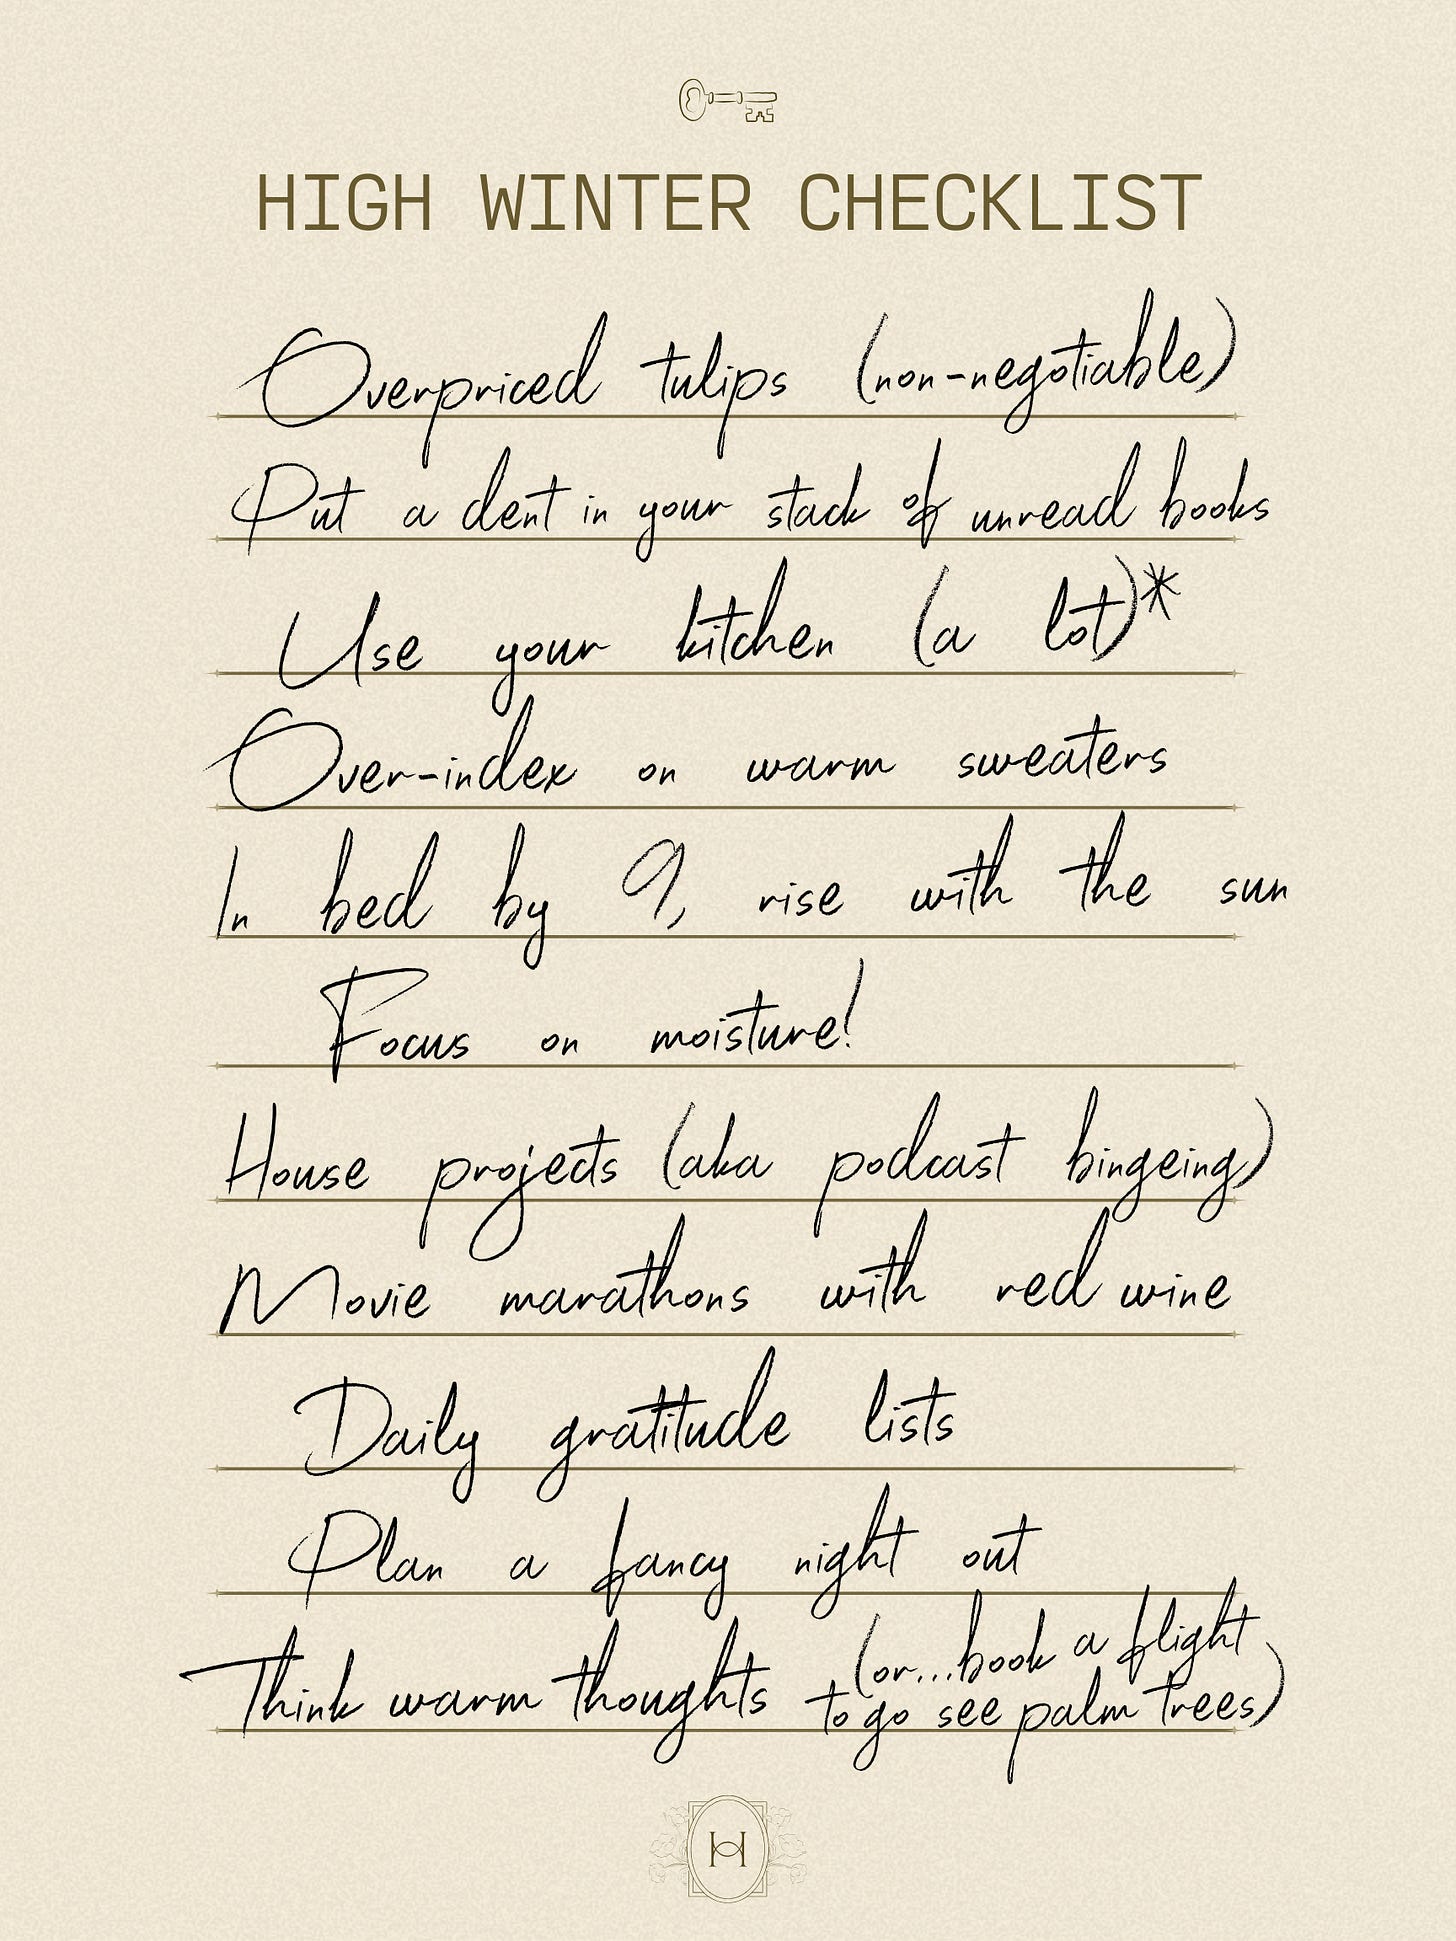 HIGH WINTER CHECKLIST
Overpriced tulips (non-negotiable)
Put a dent in your stack of unread books
Use your kitchen (a lot)*
Over-index on warm sweaters
In bed by 9, rise with the sun
Focus on moisture!
House projects (aka podcast bingeing)
Movie marathons with red wine
Daily gratitude lists
Plan a fancy night out
Think warm thoughts (or...book a flight
to go see palm trees)
H